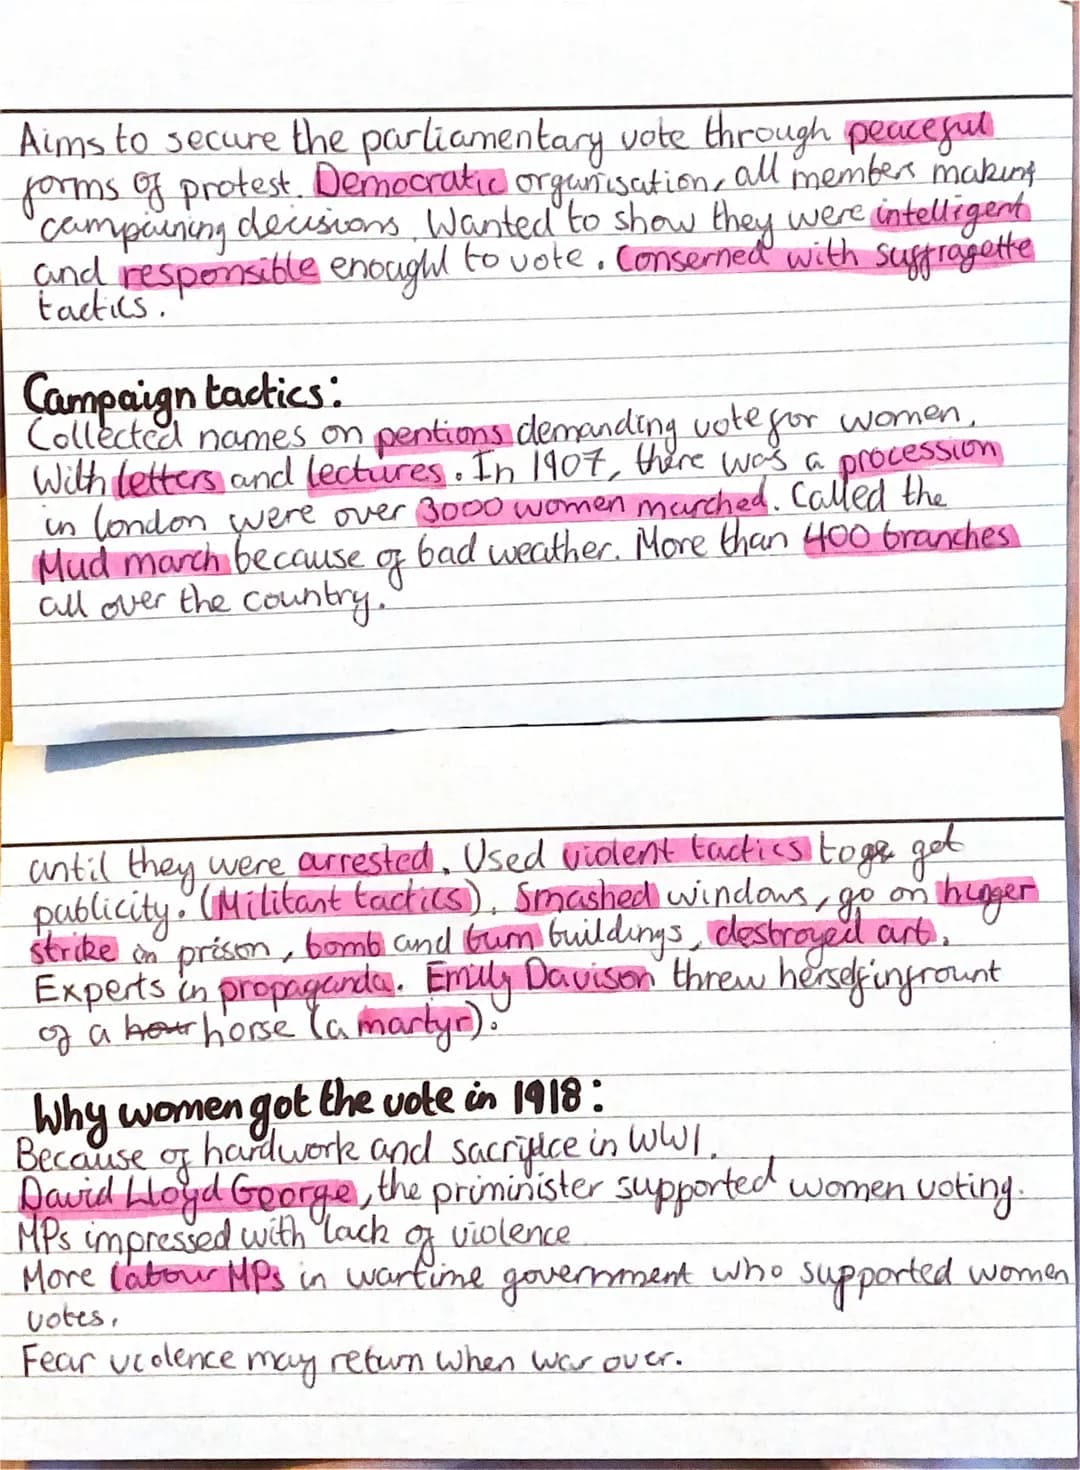 Aims to secure the parliamentary vote through peaceful
forms of protest. Democratic organisation, all members making
campaining decisions. Wanted to show they were intelligent
and responsible enought to vote. Conserned with suffragette
tactics.
Campaign tactics:
Collected names on pentions demanding vote for women.
With letters and lectures. In 1907, there was a procession
in london were over 3000 women marched. Called the
Mud march because of bad weather. More than 400 branches
all over the country.
until they were arrested. Used violent tactics to get
publicity. (Militant tactics). Smashed windows, go on hunger
strike in prison, bomb and burn buildings, destroyed art.
Experts in propaganda. Emily Davison threw herself infrount
of a horse (a martyr).
Why women got the vote in 1918:
Because of hardwork and sacrifice in WW1.
David Lloyd George, the priminister supported women voting.
MPs impressed with lack of violence
More labour MPs in wartime government who supported women
votes.
Fear violence may return when war over.